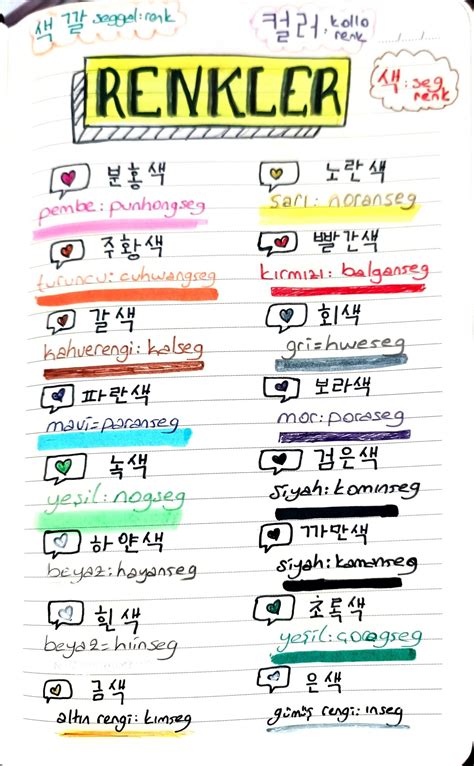 색깔 seggel:renk
컬러: kollo
renk
색:seg
renk
RENKLER
분홍색
pembe: punhongseg
노란색
sarı: noranseg
주황색
turuncu: cuhwangseg
빨간색
kırmızı: balganseg
갈색
kahverengi: kalseg
회색
gri=hweseg
파란색
mavi=paranseg
보라색
mor: poraseg
녹색
yeşil: nogseg
검은색
siyah: kominseg
하얀색
beyaz: hayanseg
까만색
siyah: kamanseg
흰색
beyaz=hiinseg
초록색
yeşil: çoragseg
금색
altın rengi: kımseg
은색
gümüş rengi: inseg